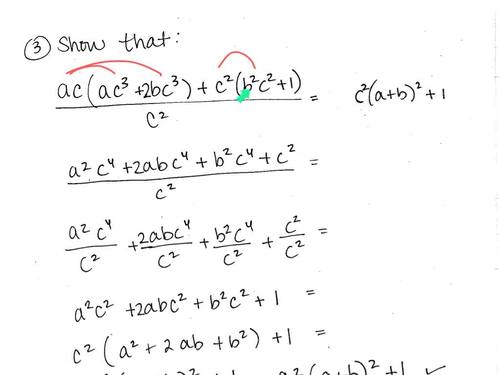 ③ Show that:
ac(ac³+2bc³)+c²(b²c²+1) = c²(a+b)²+1
c²
a²c⁴+2abc⁴+b²c⁴+c² =
c²
a²c⁴ + 2abc⁴ + b²c⁴ + c² =
c² c² c² c²
a²c²+2abc²+b²c²+1 =
c²(a²+2ab+b²)+1 =
(a+b)²+1 ✓